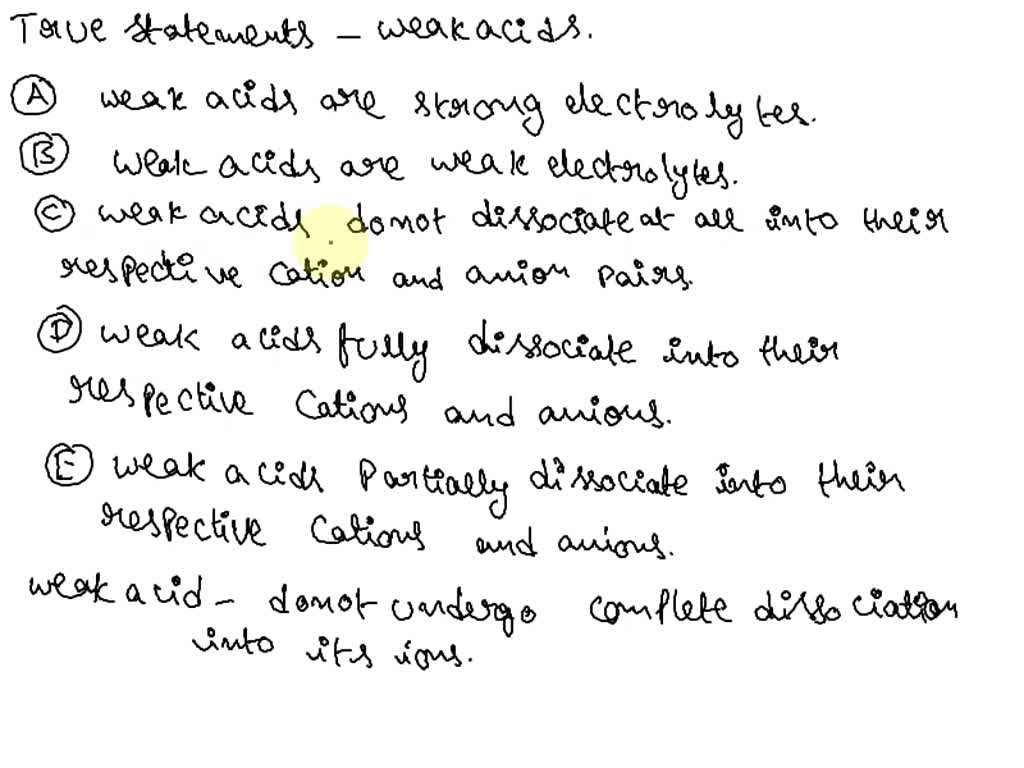 True statements – weak acids.
(A) weak acids are strong electrolytes.
(B) weak acids are weak electrolytes.
(C) weak acids donot dissociate at all into their
respective cation and anion pairs.
(D) weak acids fully dissociate into their
respective cations and anions.
(E) weak acids partially dissociate into their
respective cations and anions.
weak acid – donot undergo complete dissociation
into its ions.